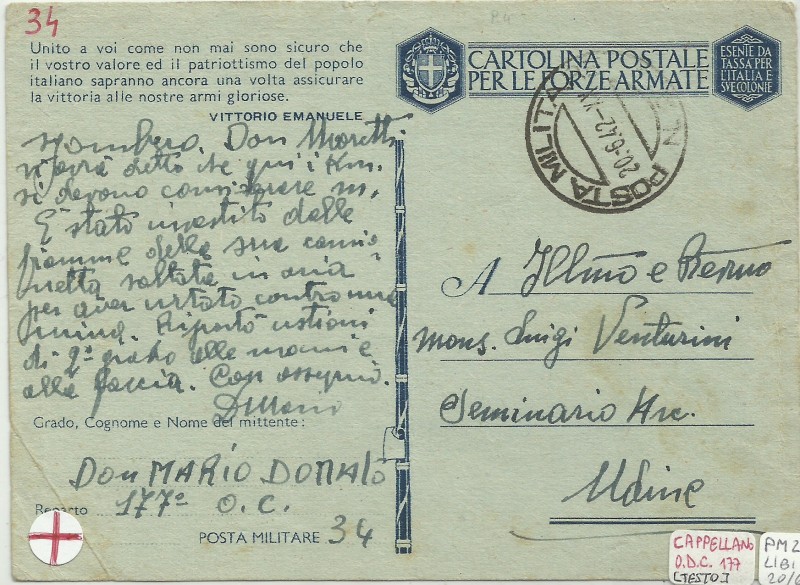 34
Unito a voi come non mai sono sicuro che
il vostro valore ed il patriottismo del popolo
italiano sapranno ancora una volta assicurare
la vittoria alle nostre armi gloriose.
VITTORIO EMANUELE
CARTOLINA POSTALE
PER LE FORZE ARMATE
ESENTE DA
TASSA PER
L'ITALIA E
SVE COLONIE
POSTA MILITARE N.
20.6.42
sgombero. Don Moretti
vi avrà detto che qui i Km.
si devono considerare m.
È stato investito dalle
fiamme della sua camio-
netta saltata in aria
per aver urtato contro una
mina. Riportò ustioni
di 2° grado alle mani e
alla faccia. Con ossequi.
D. Mario
A Illmo e Revmo
mons. Luigi Venturini
Seminario Arc.
Udine
Grado, Cognome e Nome del mittente:
Don MARIO DONATO
Reparto 177° O.C.
POSTA MILITARE 34
CAPPELLANO
O.D.C. 177
[TESTO]
PM 2
LIBI
20/